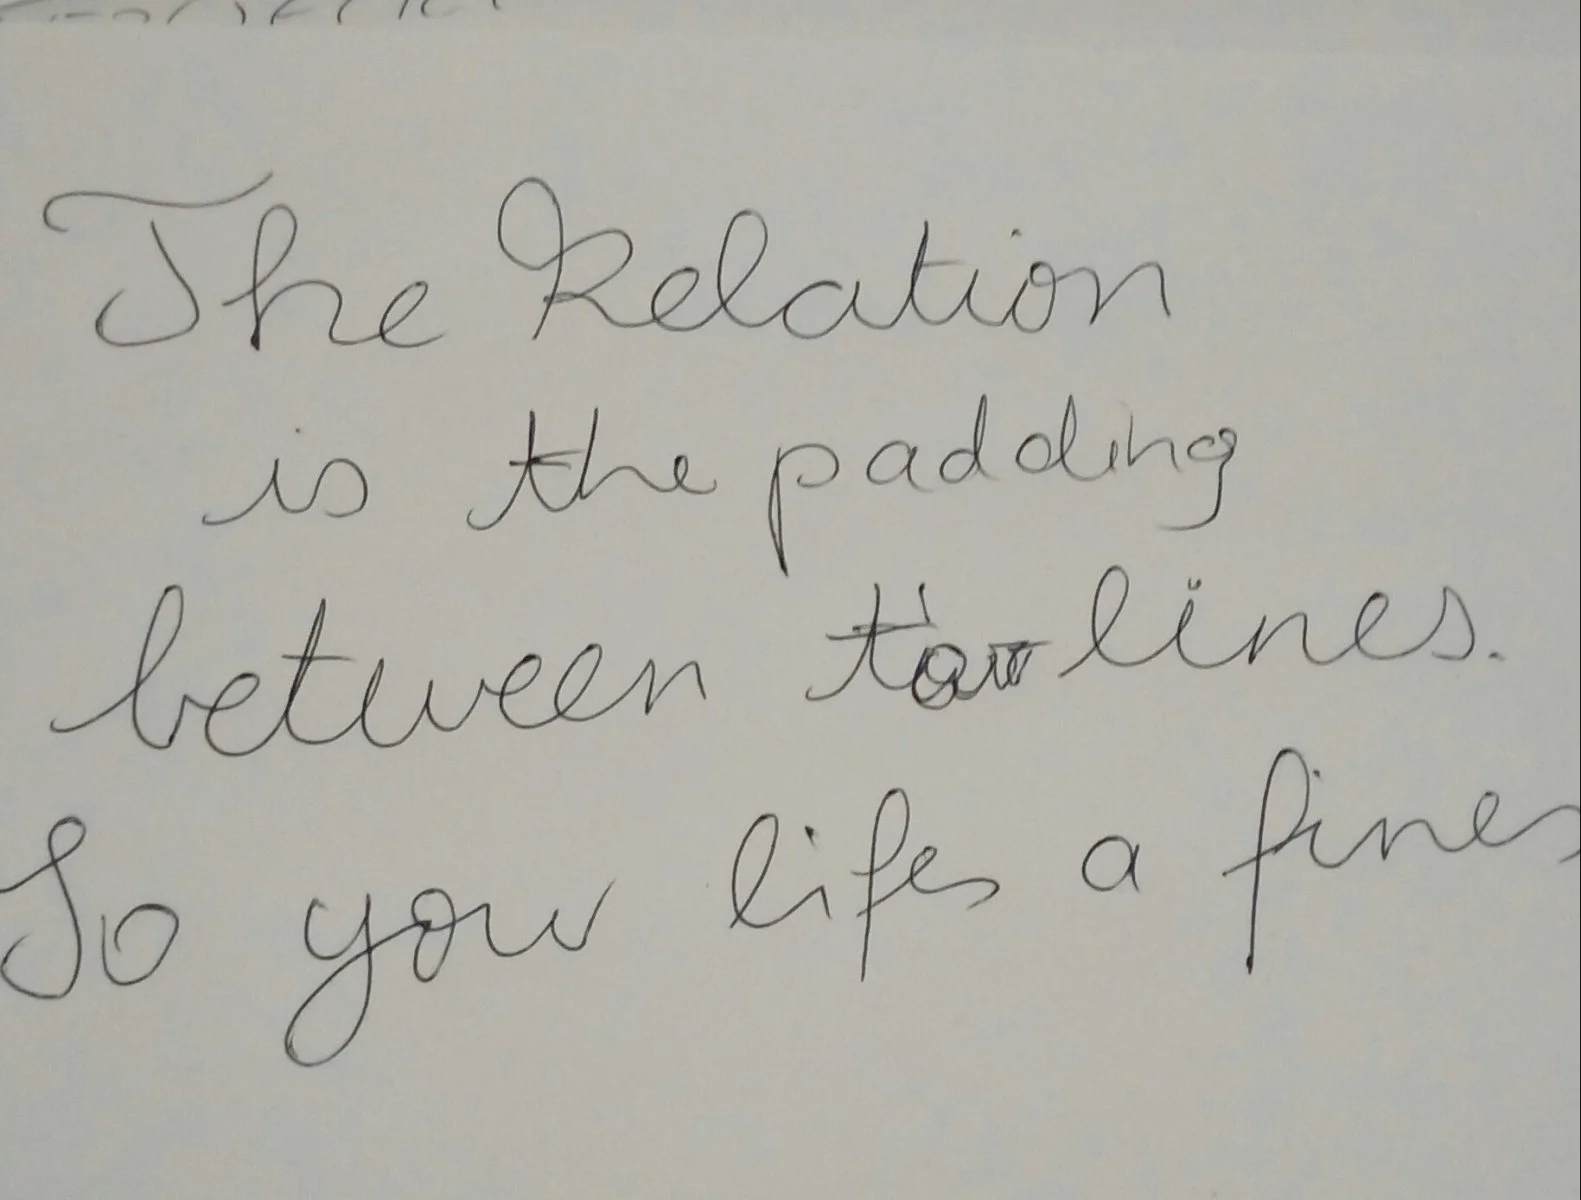 The Relation
is the padding
between lines.
So your lifes a fines